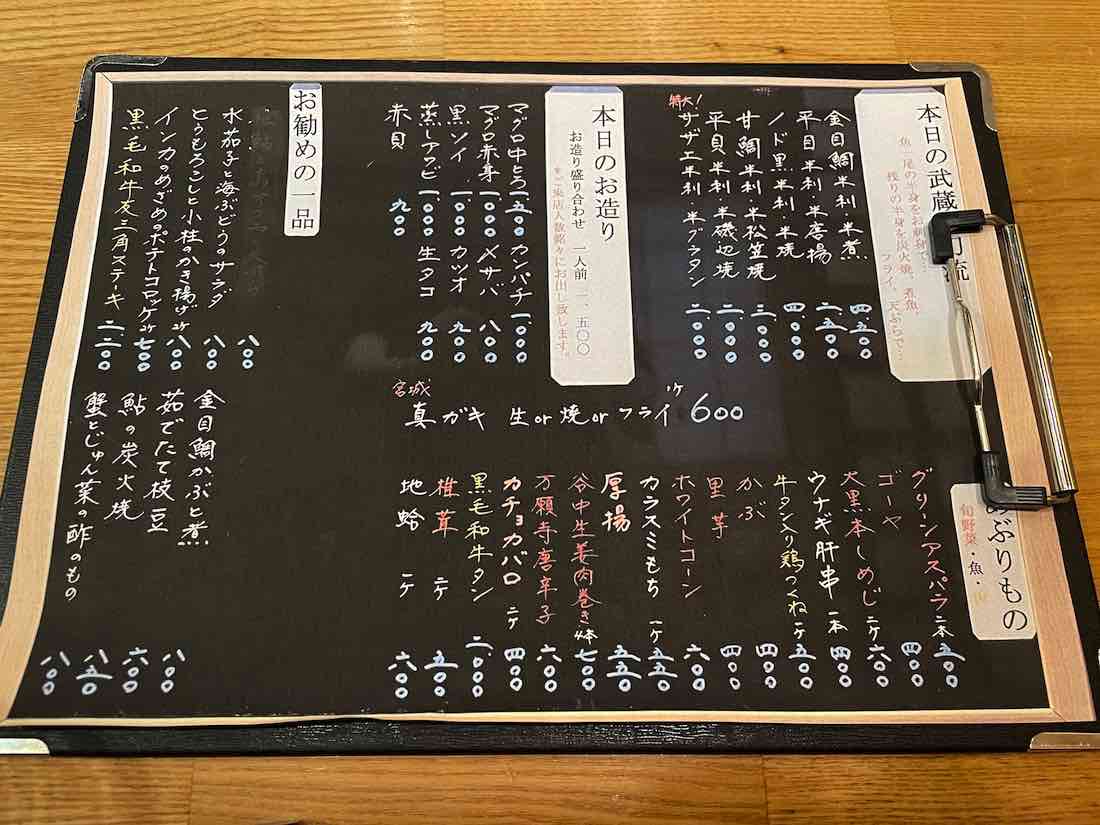 本日の武蔵
刀流
魚一尾の半身をお刺身で…
残りの半身を炭火焼、煮魚、
フライ、天ぷらで…
金目鯛半利・半煮 四五〇〇
平目半利・半唐揚 二五〇〇
ノド黒半利・半焼 四〇〇〇
甘鯛半利・半松笠焼 三〇〇〇
平貝半利・半磯辺焼 二〇〇〇
特大!
サザエ半利・半グラタン 二〇〇〇
本日のお造り
お造り盛り合わせ 一人前 一、五〇〇
※ご来店人数銘々にお出し致します。
マグロ中とろ 一、五〇〇
マグロ赤身 一、〇〇〇
黒ソイ 一、〇〇〇
蒸しアワビ 一、〇〇〇
赤貝 九〇〇
カンパチ 一、〇〇〇
〆サバ 八〇〇
カツオ 九〇〇
生タコ 九〇〇
宮城
真ガキ 生or焼orフライ 1ケ 600
お勧めの一品
水茄子と海ぶどうのサラダ 八〇〇
とうもろこしと小柱のかき揚げ 八〇〇
インカのめざめのポテトコロッケ 2ケ 七〇〇
黒毛和牛友三角ステーキ 二二〇〇
金目鯛かぶと煮 八〇〇
茹でたて枝豆 六〇〇
鮎の炭火焼 八五〇
蟹とじゅん菜の酢のもの 八〇〇
あぶりもの
旬野菜・魚・肉
グリーンアスパラ 二本 五〇〇
ゴーヤ 四〇〇
大黒本しめじ 二ケ 六〇〇
ウナギ肝串 一本 四〇〇
牛タン入り鶏つくね 一ケ 五〇〇
かぶ 四〇〇
里芋 四〇〇
ホワイトコーン 六〇〇
カラスミもち 一ケ 五五〇
厚揚 五五〇
谷中生姜肉巻き 4本 七〇〇
万願寺唐辛子 六〇〇
カチョカバロ 二ケ 四〇〇
黒毛和牛タン 二、〇〇〇
椎茸 二ケ 五〇〇
地蛤 一ケ 六〇〇